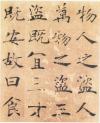 物人之盜人
萬物之盜三
盜既宜三才
既安故曰食